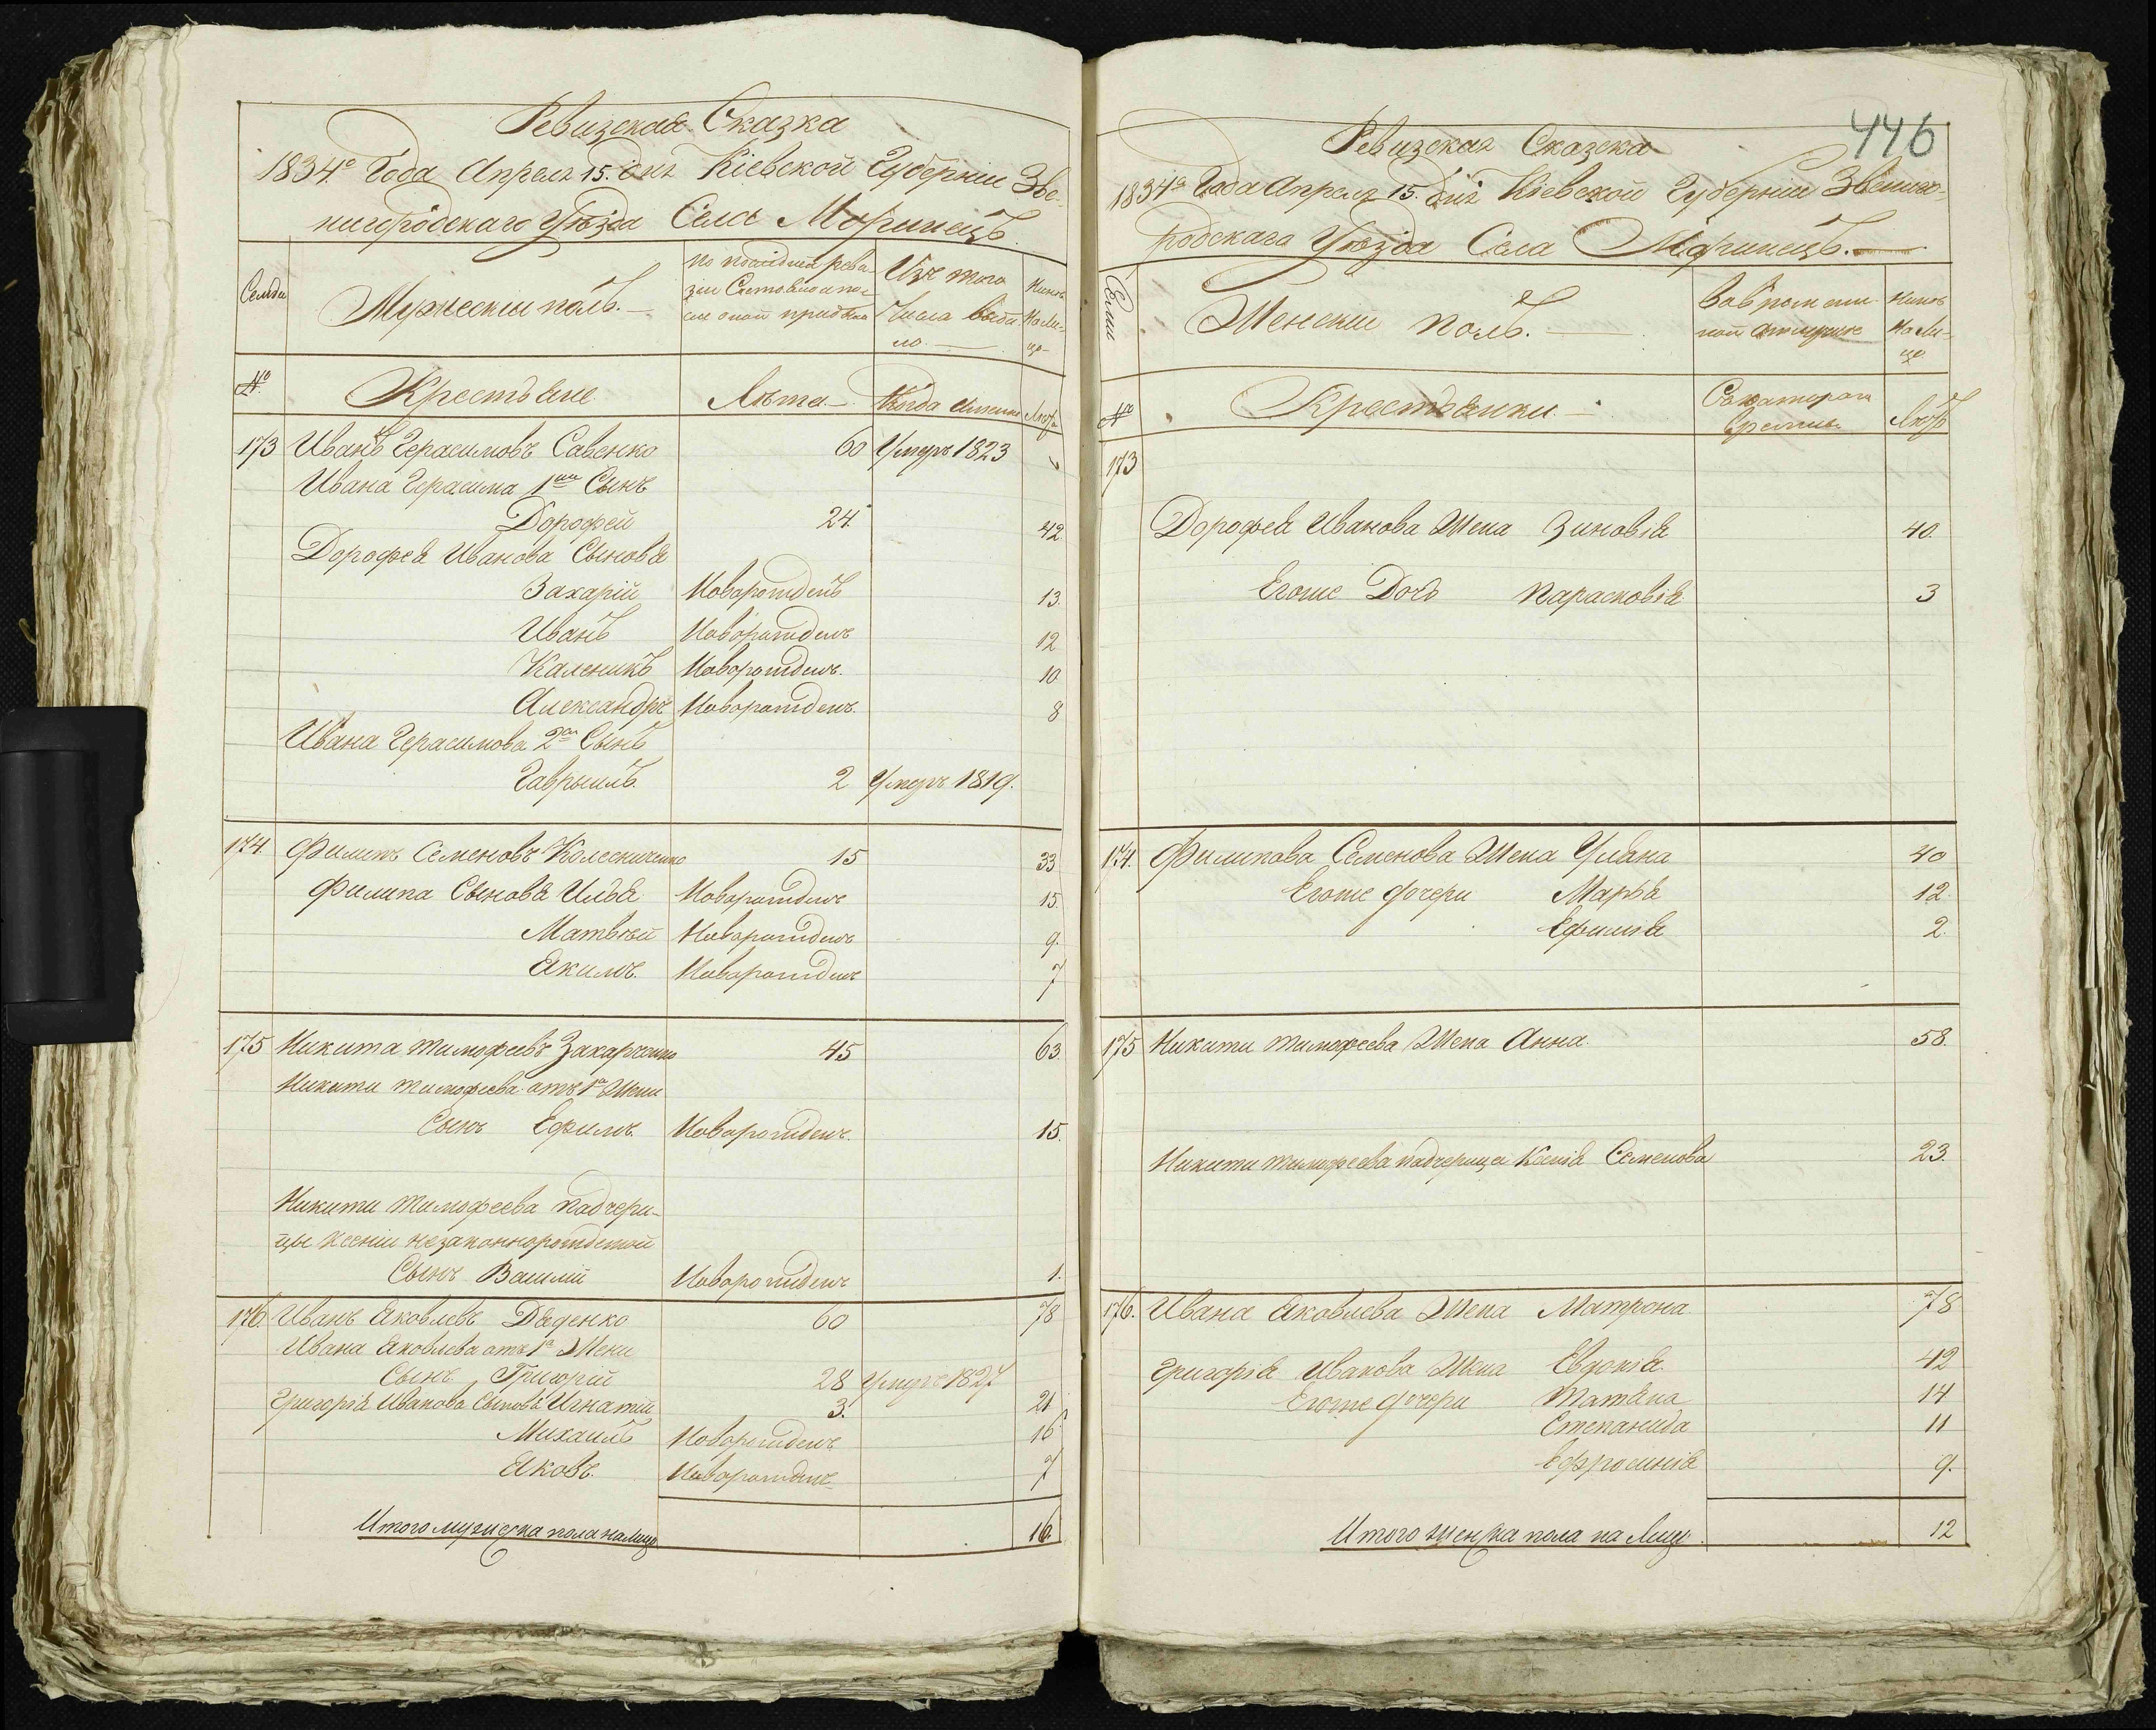 Ревизская Сказка
1834го Года Апреля 15. дня Кіевской Губерніи Зве-
нигородскаго Уѣзда Села Моринецъ
Семьи
Мужескій полъ.
По послѣдней реви-
зіи Состояло и по-
слѣ оной прибыло
Изъ того
Числа выбы-
ло.
Нынѣ
На Ли-
цо
№
Крестьяне
Лѣта
Когда имянно
Лѣта
173 Иванъ Герасимовъ Савенко 60 Умеръ 1823
Ивана Герасима 1й Сынъ
Дорофей 24. 42
Дорофея Иванова Сыновья
Захарій Новорожденъ 13.
Иванъ Новорожденъ 12
Каленикъ Новорожденъ. 10
Александръ Новорожденъ. 8
Ивана Герасимова 2й Сынъ
Гаврыилъ. 2 Умеръ 1819.
174. Филипъ Семеновъ Колесниченко 15 33
Филипа Сыновья Илья Новорожденъ 15.
Матвѣй Новорожденъ 9.
Якимъ. Новорожденъ 7
175 Никита Тимофеевъ Захарченко 45 63
Никити Тимофеева отъ 1й Жени
Сынъ Ефимъ. Новорожденъ. 15.
Никити Тимофеева падчери-
цы Ксеніи незаконнорожденой
Сынъ Василій Новорожденъ 1.
176. Иванъ Яковлевъ Дяденко 60 78
Ивана Яковлева отъ 1й Жени
Сынъ Григорій 28 Умеръ 1827
Григорія Иванова Сыновья Игнатій 3. 21
Михаилъ Новорожденъ 16
Яковъ. Новорожденъ 7
Итого мужеска пола налицо 16.
446
Ревизская Сказка
1834го Года Апреля 15. дня Кіевской Губерніи Звениго-
родскаго Уѣзда Села Моринецъ.
Семьи
Женскій полъ.
Во времен-
ной отлучке
Нынѣ
На Ли-
цо
№
Крестьянки.
Съ котораго
времены
Лѣтъ
173
Дорофея Иванова Жена Зиновія 40.
Егоже Дочь Парасковія 3
174. Филипова Семенова Жена Уляна 40
Егоже дочери Марья 12.
Ефимія 2.
175 Никити Тимофеева Жена Анна. 58.
Никити Тимофеева падчерица Ксенія Семенова 23.
176. Ивана Яковлева Жена Матрона 78
Григорія Иванова Жена Евдокія. 42
Егоже дочери Татяна 14
Степанида 11
Ефросинія 9.
Итого женска пола на Лице 12